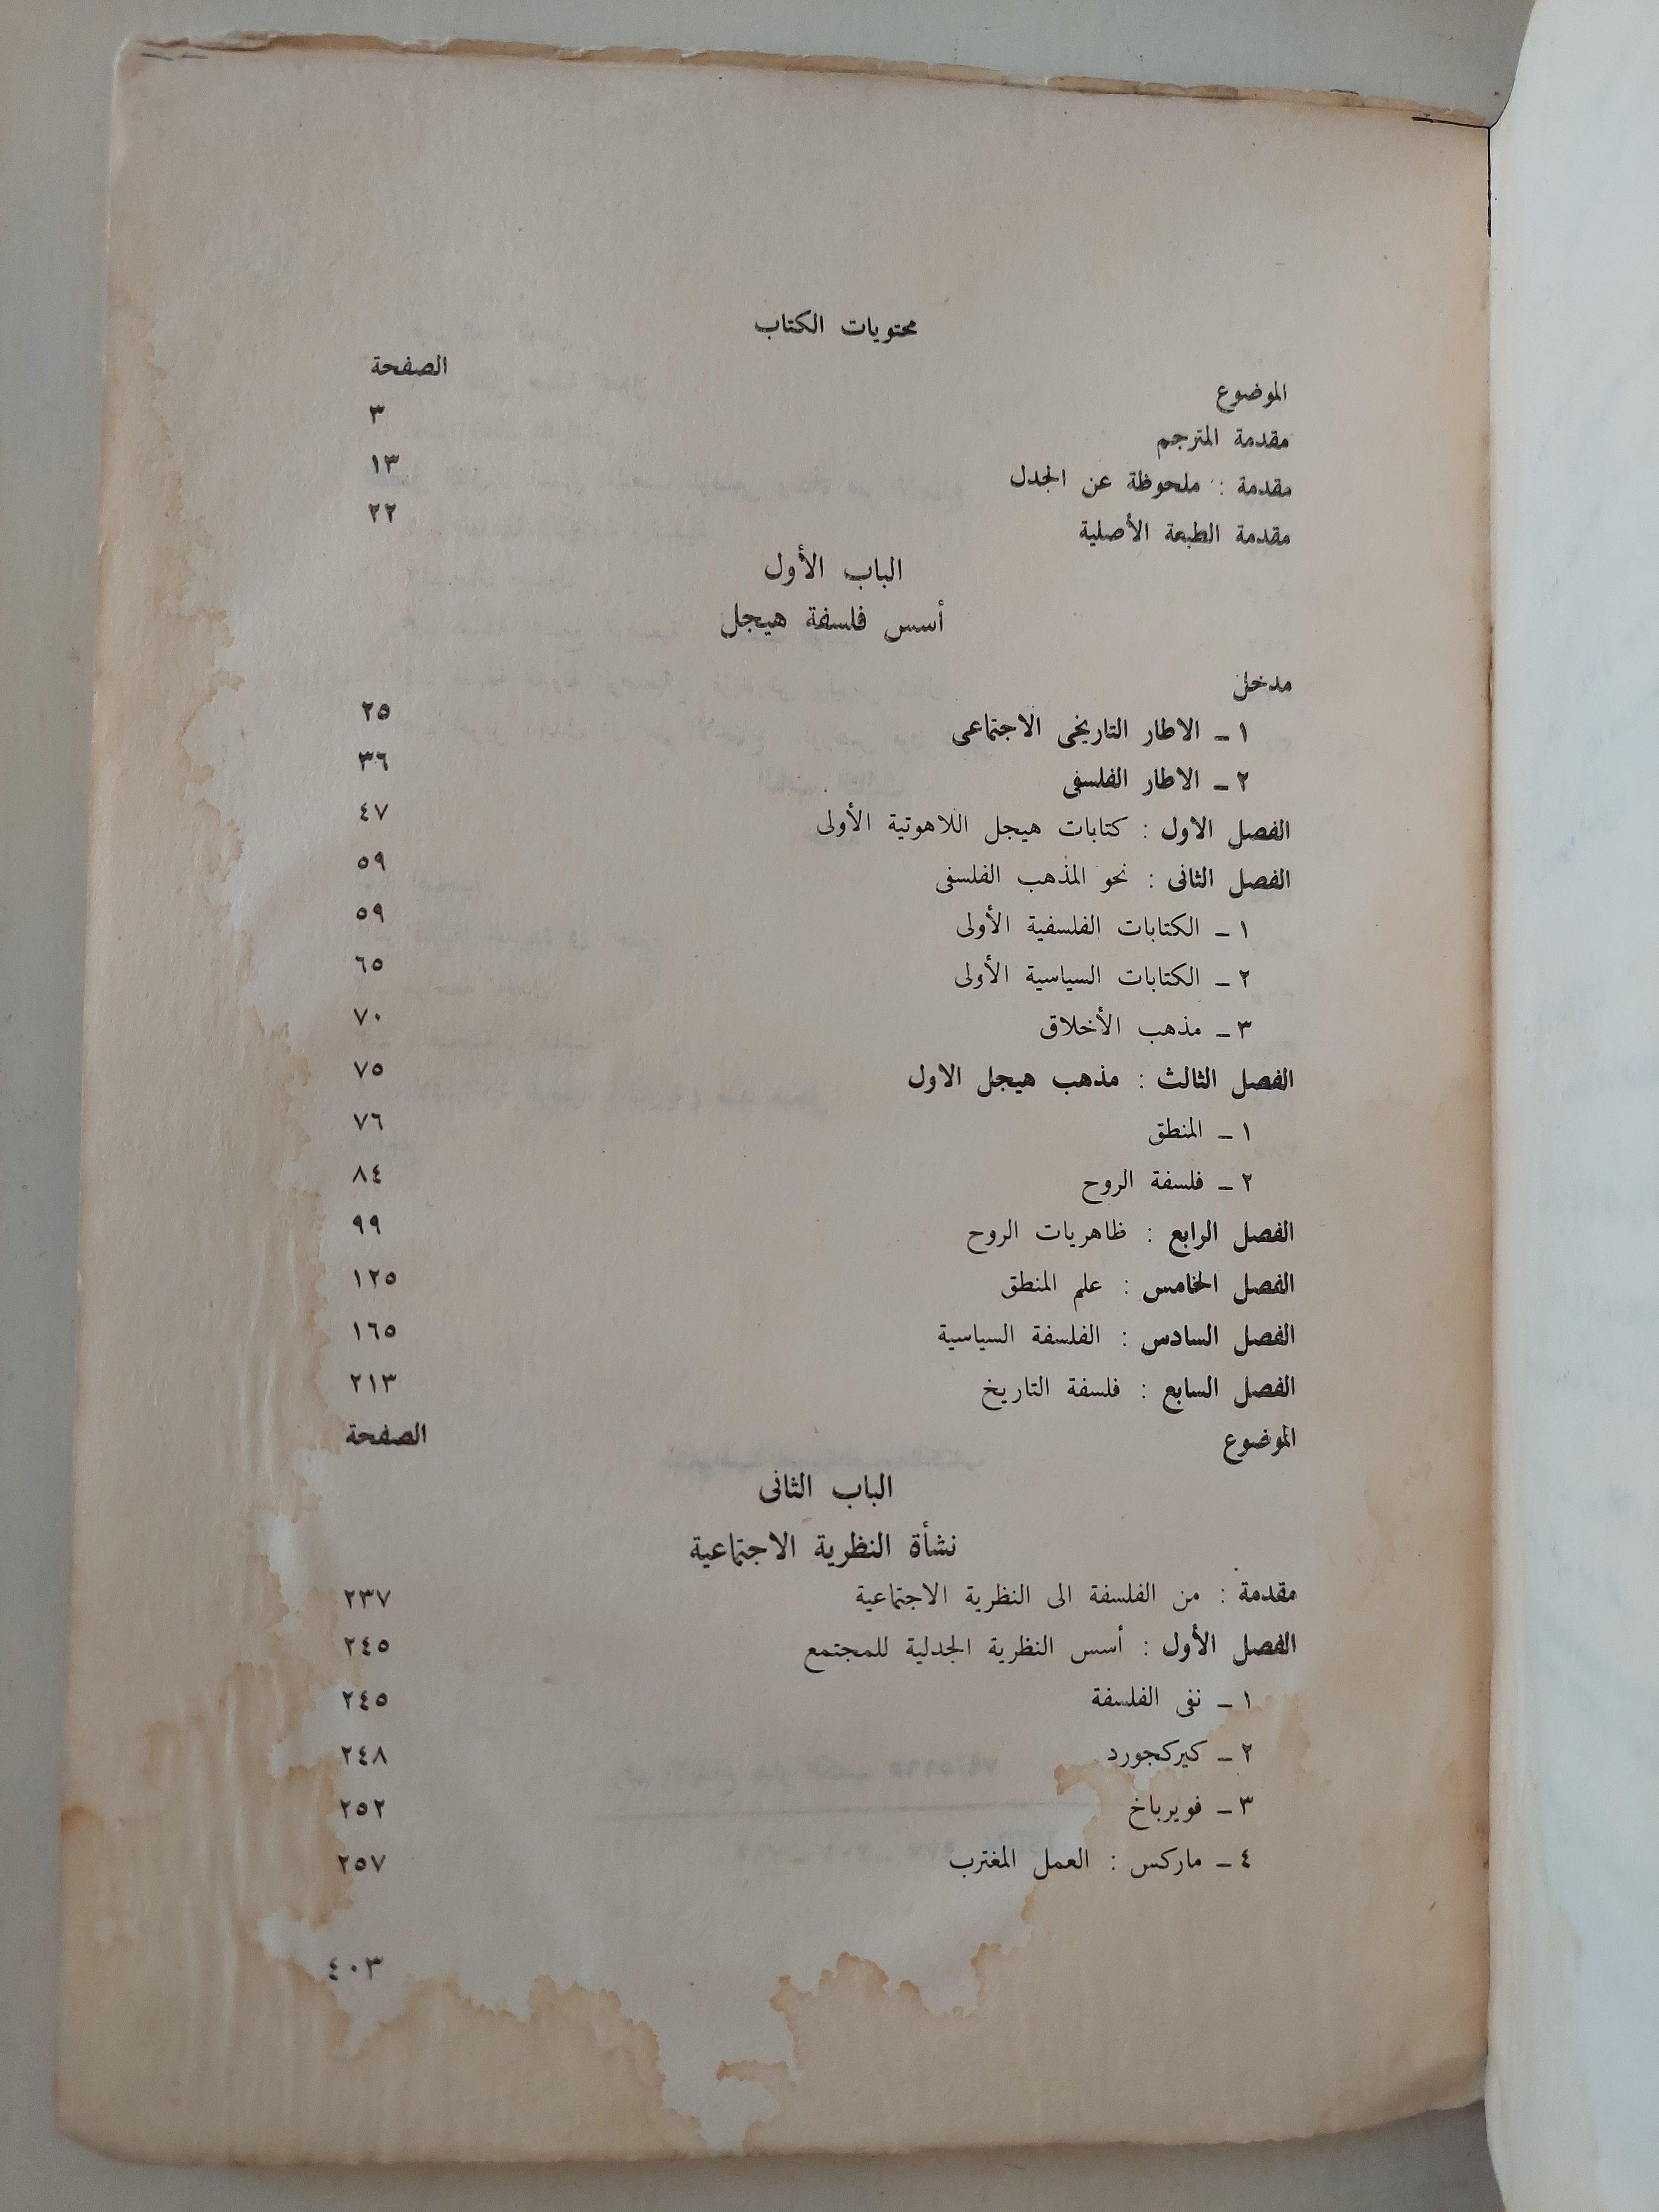 محتويات الكتاب
الموضوع الصفحة
مقدمة المترجم ٣
مقدمة : ملحوظة عن الجدل ١٣
مقدمة الطبعة الأصلية ٢٢
الباب الأول
أسس فلسفة هيجل
مدخل
١ ــ الاطار التاريخى الاجتماعى ٢٥
٢ ــ الاطار الفلسفى ٣٦
الفصل الاول : كتابات هيجل اللاهوتية الأولى ٤٧
الفصل الثانى : نحو المذهب الفلسفى ٥٩
١ ــ الكتابات الفلسفية الأولى ٥٩
٢ ــ الكتابات السياسية الأولى ٦٥
٣ ــ مذهب الأخلاق ٧٠
الفصل الثالث : مذهب هيجل الاول ٧٥
١ ــ المنطق ٧٦
٢ ــ فلسفة الروح ٨٤
الفصل الرابع : ظاهريات الروح ٩٩
الفصل الخامس : علم المنطق ١٢٥
الفصل السادس : الفلسفة السياسية ١٦٥
الفصل السابع : فلسفة التاريخ ٢١٣
الموضوع الصفحة
الباب الثانى
نشأة النظرية الاجتماعية
مقدمة : من الفلسفة الى النظرية الاجتماعية ٢٣٧
الفصل الأول : أسس النظرية الجدلية للمجتمع ٢٤٥
١ ــ نفى الفلسفة ٢٤٥
٢ ــ كيركجورد ٢٤٨
٣ ــ فويرباخ ٢٥٢
٤ ــ ماركس : العمل المغترب ٢٥٧
٤٠٣